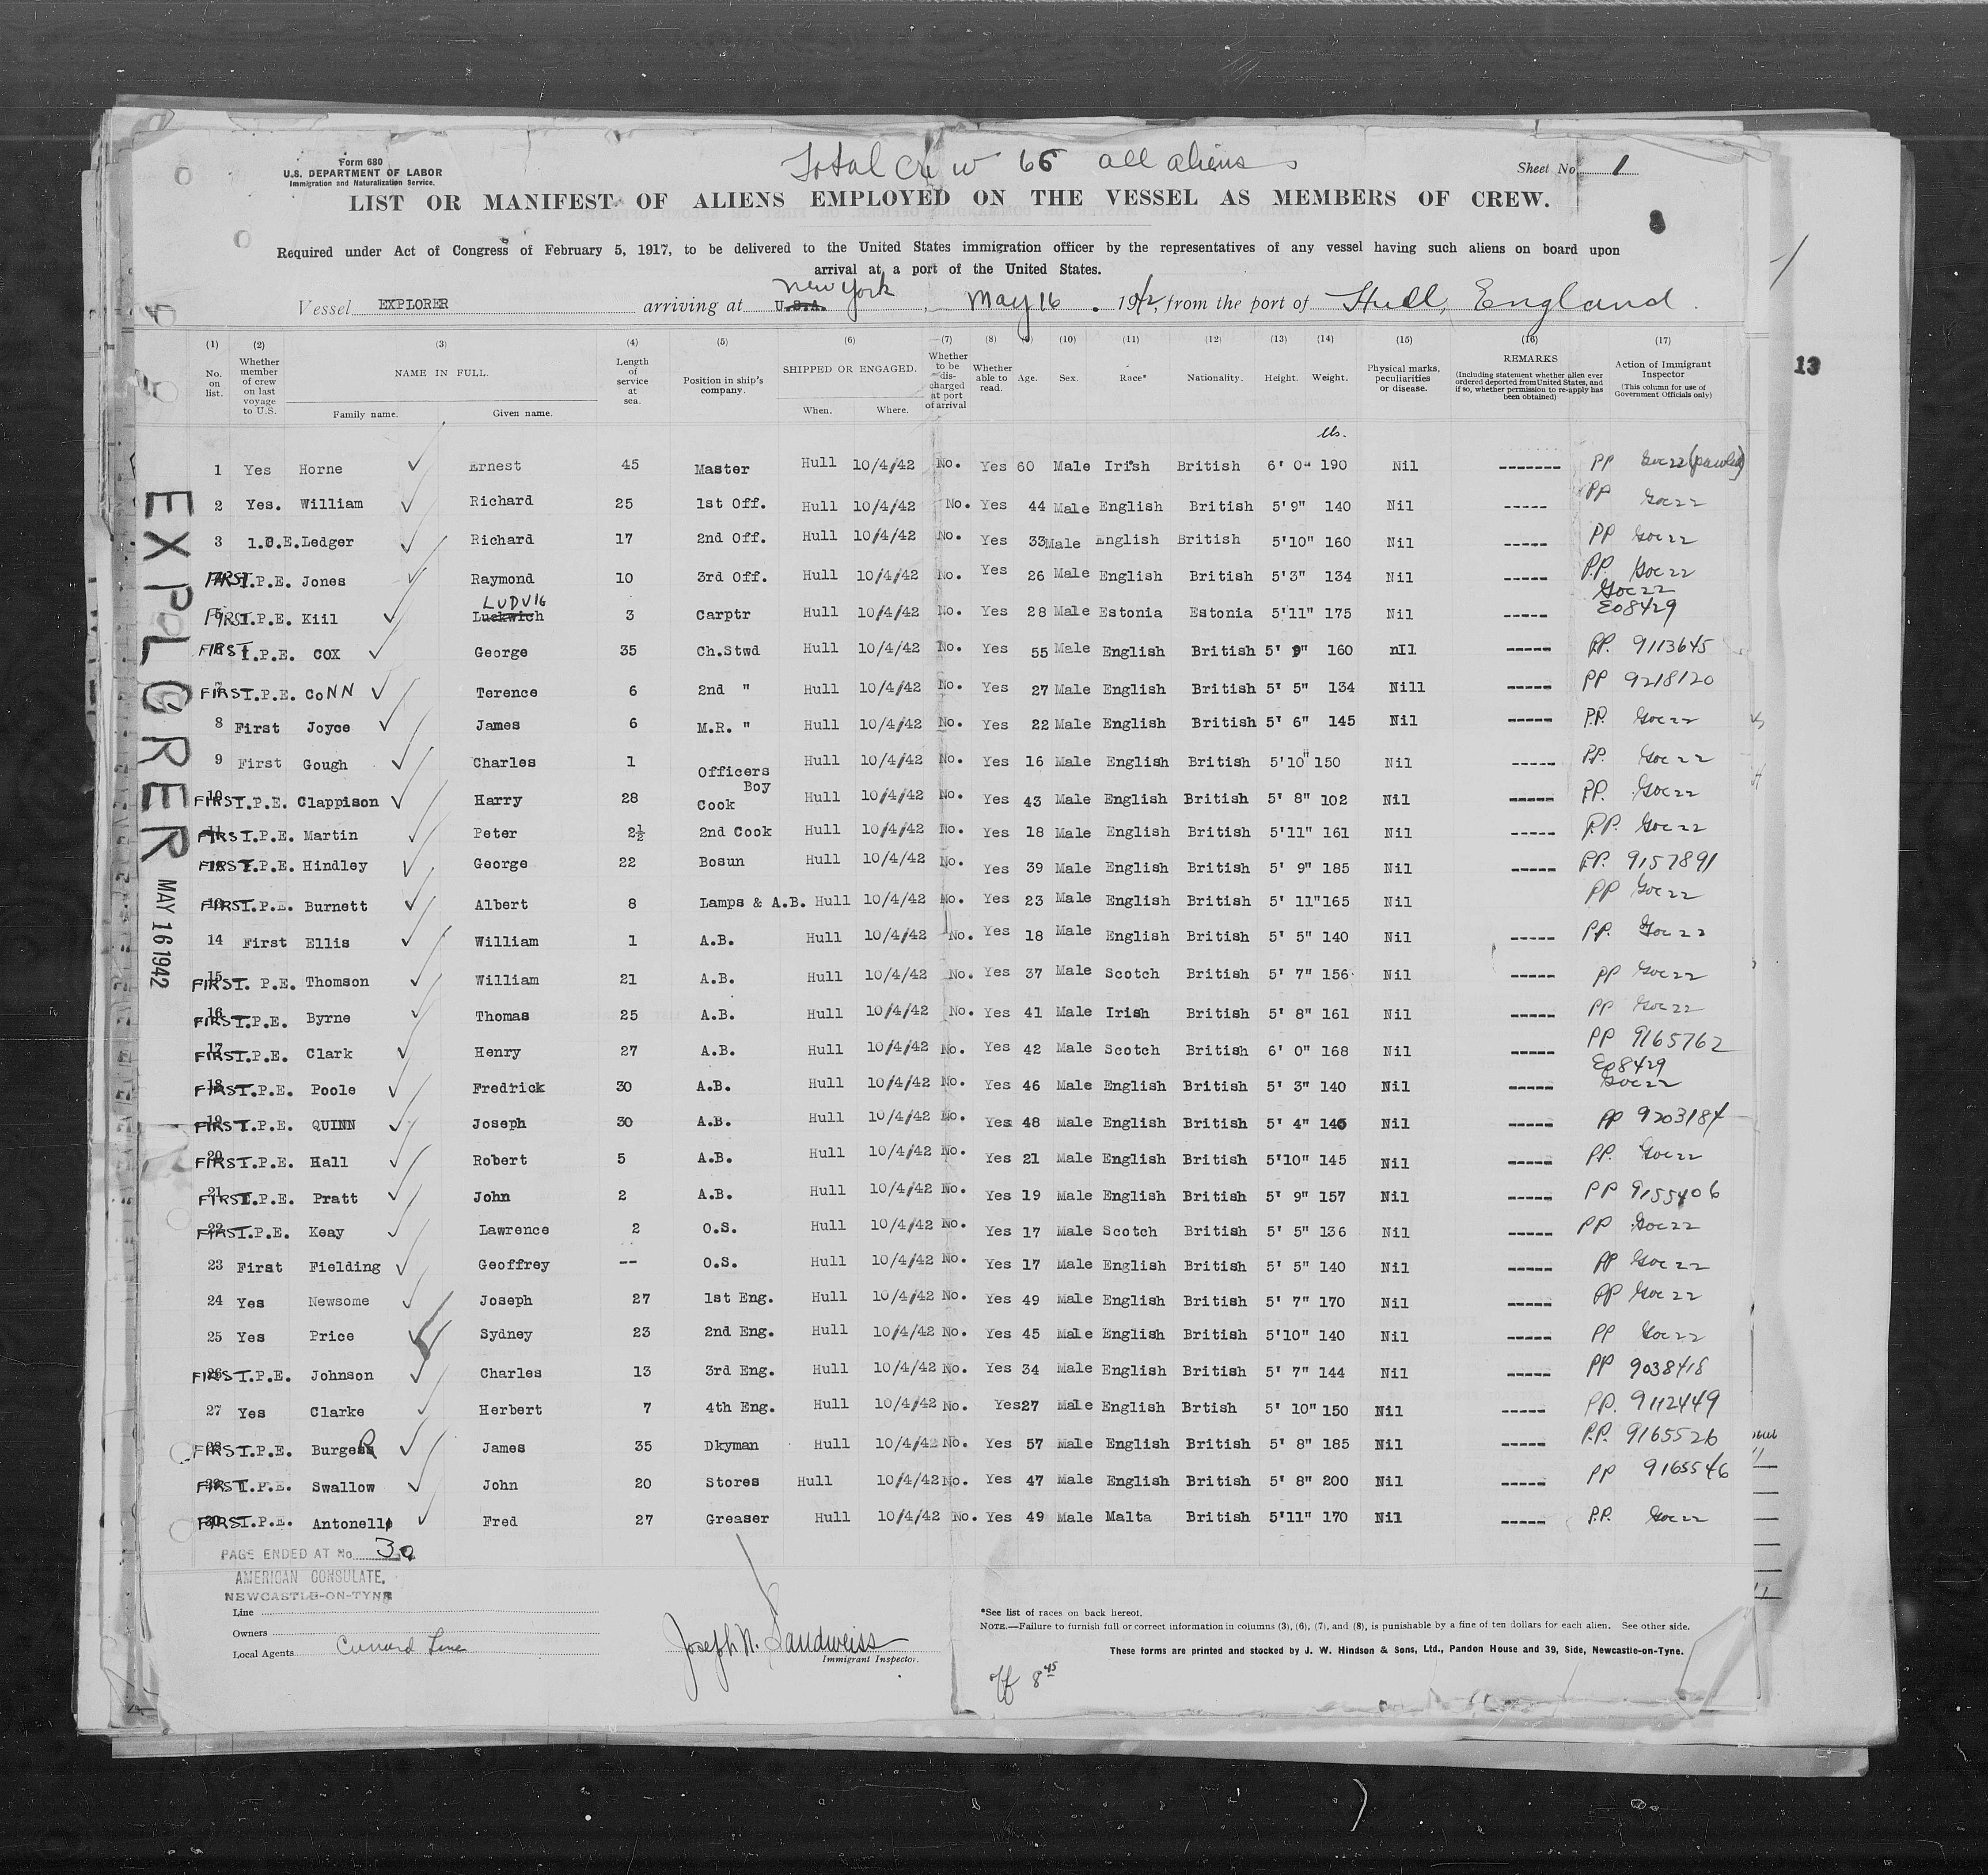 Form 680
U.S. DEPARTMENT OF LABOR
Immigration and Naturalization Service.
Total Crew 66 all aliens
Sheet No. 1
LIST OR MANIFEST OF ALIENS EMPLOYED ON THE VESSEL AS MEMBERS OF CREW.
Required under Act of Congress of February 5, 1917, to be delivered to the United States immigration officer by the representatives of any vessel having such aliens on board upon
arrival at a port of the United States.
New York
Vessel EXPLORER arriving at U.S.A. May 16. 1942, from the port of Hull, England.
(1) (2) (3) (4) (5) (6) (7) (8) (9) (10) (11) (12) (13) (14) (15) (16) (17)
No. on list. Whether member of crew on last voyage to U.S. NAME IN FULL. Family name. Given name. Length of service at sea. Position in ship's company. SHIPPED OR ENGAGED. When. Where. Whether to be discharged at port of arrival Whether able to read. Age. Sex. Race* Nationality. Height. Weight. Physical marks, peculiarities or disease. REMARKS (Including statement whether alien ever ordered deported from United States, and if so, whether permission to re-apply has been obtained) Action of Immigrant Inspector (This column for use of Government Officials only)
13
lbs.
1 Yes Horne Ernest 45 Master Hull 10/4/42 No. Yes 60 Male Irish British 6' 0" 190 Nil ------- PP
2 Yes. William Richard 25 1st Off. Hull 10/4/42 No. Yes 44 Male English British 5'9" 140 Nil ----- PP
3 Ledger Richard 17 2nd Off. Hull 10/4/42 No. Yes 33 Male English British 5'10" 160 Nil ----- PP
FIRST I.P.E. Jones Raymond 10 3rd Off. Hull 10/4/42 No. Yes 26 Male English British 5'3" 134 Nil ----- P.P.
LUDVIG
FIRST I.P.E. Kiil Luckwich 3 Carptr Hull 10/4/42 No. Yes 28 Male Estonia Estonia 5'11" 175 Nil ----- Eo8429
FIRST I.P.E. COX George 35 Ch.Stwd Hull 10/4/42 No. Yes 55 Male English British 5' 9" 160 nIl ----- P.P. 9113645
FIRST I.P.E. CONN Terence 6 2nd " Hull 10/4/42 No. Yes 27 Male English British 5' 5" 134 Nill ----- PP 9218120
8 First Joyce James 6 M.R. " Hull 10/4/42 No. Yes 22 Male English British 5' 6" 145 Nil ----- P.P.
9 First Gough Charles 1 Officers Boy Hull 10/4/42 No. Yes 16 Male English British 5'10" 150 Nil ----- P.P.
10 FIRST I.P.E. Clappison Harry 28 Cook Hull 10/4/42 No. Yes 43 Male English British 5' 8" 102 Nil ----- P.P.
11 FIRST I.P.E. Martin Peter 2½ 2nd Cook Hull 10/4/42 No. Yes 18 Male English British 5'11" 161 Nil ----- P.P.
12 FIRST I.P.E. Hindley George 22 Bosun Hull 10/4/42 No. Yes 39 Male English British 5' 9" 185 Nil ----- P.P. 9157891
13 FIRST I.P.E. Burnett Albert 8 Lamps & A.B. Hull 10/4/42 No. Yes 23 Male English British 5' 11" 165 Nil PP
14 First Ellis William 1 A.B. Hull 10/4/42 No. Yes 18 Male English British 5' 5" 140 Nil ----- P.P.
15 FIRST. P.E. Thomson William 21 A.B. Hull 10/4/42 No. Yes 37 Male Scotch British 5' 7" 156 Nil ----- PP
16 FIRST I.P.E. Byrne Thomas 25 A.B. Hull 10/4/42 No. Yes 41 Male Irish British 5' 8" 161 Nil ----- PP
17 FIRST I.P.E. Clark Henry 27 A.B. Hull 10/4/42 No. Yes 42 Male Scotch British 6' 0" 168 Nil ----- PP 9165762
18 FIRST I.P.E. Poole Fredrick 30 A.B. Hull 10/4/42 No. Yes 46 Male English British 5' 3" 140 Nil ----- Eo8429
19 FIRST I.P.E. QUINN Joseph 30 A.B. Hull 10/4/42 No. Yes 48 Male English British 5' 4" 146 Nil ----- PP 9203184
20 FIRST I.P.E. Hall Robert 5 A.B. Hull 10/4/42 No. Yes 21 Male English British 5'10" 145 Nil ----- P.P.
21 FIRST I.P.E. Pratt John 2 A.B. Hull 10/4/42 No. Yes 19 Male English British 5' 9" 157 Nil ----- PP 9155406
22 FIRST I.P.E. Keay Lawrence 2 O.S. Hull 10/4/42 No. Yes 17 Male Scotch British 5' 5" 136 Nil ----- PP
23 First Fielding Geoffrey -- O.S. Hull 10/4/42 No. Yes 17 Male English British 5' 5" 140 Nil ----- PP
24 Yes Newsome Joseph 27 1st Eng. Hull 10/4/42 No. Yes 49 Male English British 5' 7" 170 Nil ----- PP
25 Yes Price Sydney 23 2nd Eng. Hull 10/4/42 No. Yes 45 Male English British 5'10" 140 Nil ----- PP
26 FIRST I.P.E. Johnson Charles 13 3rd Eng. Hull 10/4/42 No. Yes 34 Male English British 5' 7" 144 Nil ----- PP 9038418
27 Yes Clarke Herbert 7 4th Eng. Hull 10/4/42 No. Yes 27 Male English Brtish 5' 10" 150 Nil ----- P.P. 9112449
28 FIRST I.P.E. Burgess James 35 Dkyman Hull 10/4/42 No. Yes 57 Male English British 5' 8" 185 Nil ----- P.P. 9165526
29 FIRST I.P.E. Swallow John 20 Stores Hull 10/4/42 No. Yes 47 Male English British 5' 8" 200 Nil ----- PP 9165546
30 FIRST I.P.E. Antonello Fred 27 Greaser Hull 10/4/42 No. Yes 49 Male Malta British 5'11" 170 Nil ----- P.P.
EXPLORER
MAY 16 1942
PAGE ENDED AT No. 30
AMERICAN CONSULATE,
NEWCASTLE-ON-TYNE
Line
Owners
Local Agents Cunard Line
Joseph N. Sandweiss
Immigrant Inspector.
*See list of races on back hereof.
NOTE.—Failure to furnish full or correct information in columns (3), (6), (7), and (8), is punishable by a fine of ten dollars for each alien. See other side.
These forms are printed and stocked by J. W. Hindson & Sons, Ltd., Pandon House and 39, Side, Newcastle-on-Tyne.
off 8 45